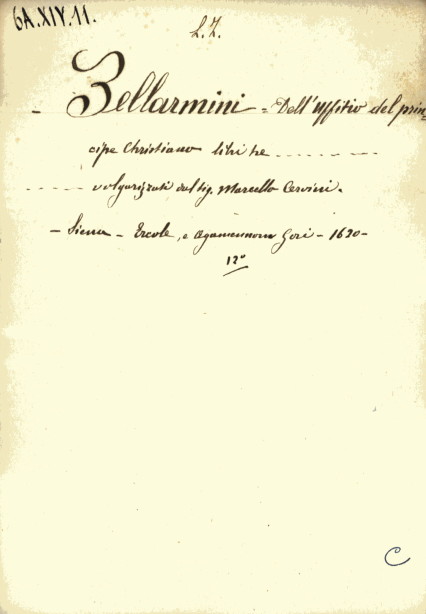 6A.XIV.11.
L.Z.
- Bellarmini = Dell'Uffitio del prin=
cipe Christiano libri tre - - - - - - -
- - - - - volgarizzati dal sig. Marcello Cervini.
- Siena - Ercole, e Agamennone Gori - 1620 -
12°
C